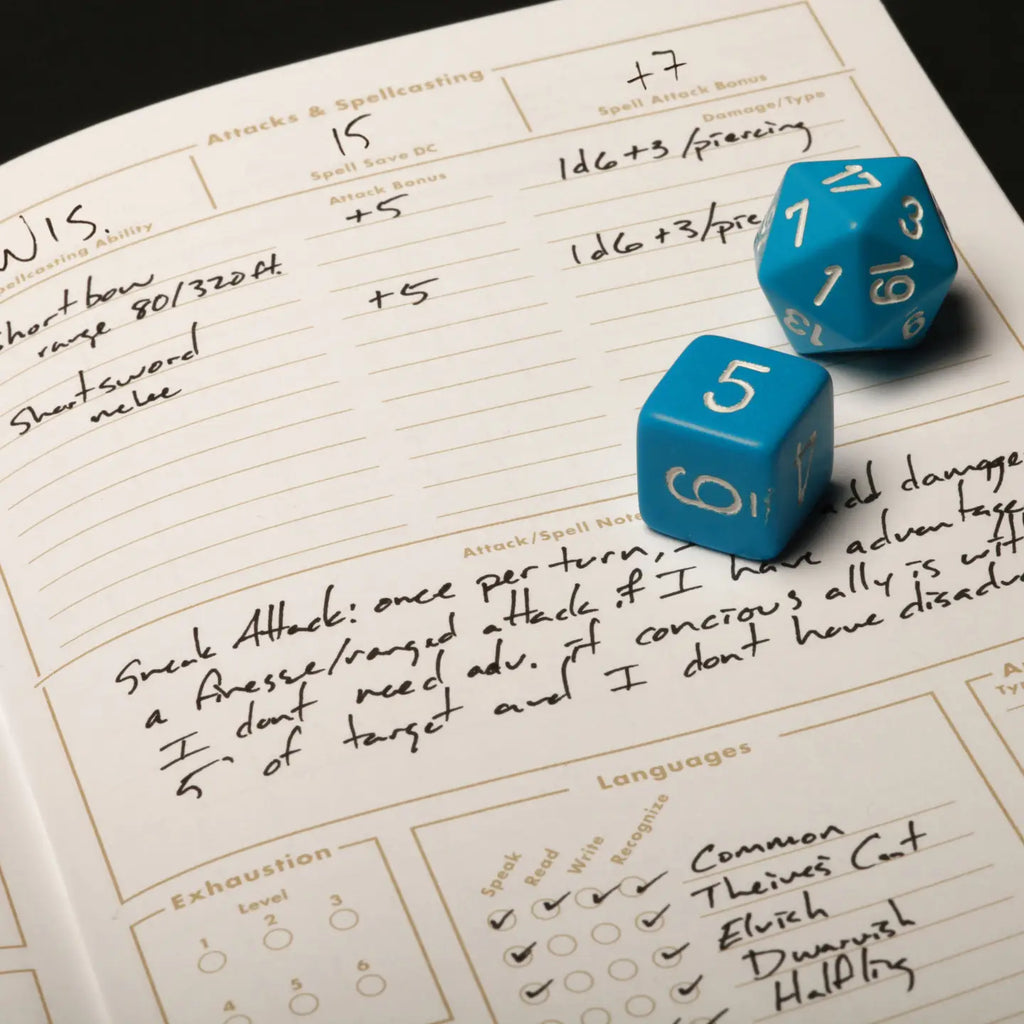 Attacks & Spellcasting
WIS.
15
+7
Spellcasting Ability
Spell Save DC
Spell Attack Bonus
Attack Bonus
Damage/Type
Shortbow
range 80/320 ft.
+5
1d6+3/piercing
Shortsword
melee
+5
1d6+3/pie
17
7
3
1
19
13
9
5
6
Attack/Spell Note
Sneak Attack: once per turn, I add damage
a finesse/ranged attack if I have advantage,
I dont need adv. if concious ally is with
5' of target and I dont have disadv
Exhaustion
Level
1
2
3
4
5
6
Languages
Speak
Read
Write
Recognize
Common
Theives Cant
Elvish
Dwarvish
Halfling